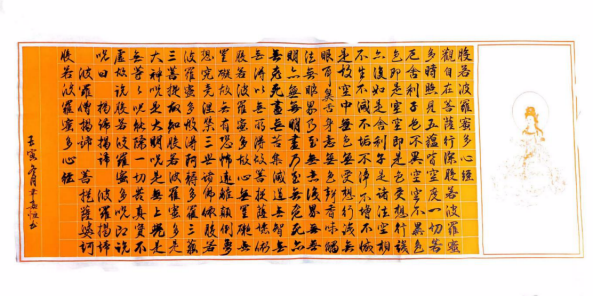 般若波羅蜜多心經
觀自在菩薩行深般若波羅蜜
多時照見五蘊皆空度一切苦
厄舍利子色不異空空不異色
色即是空空即是色受想行識
亦復如是舍利子是諸法空相
不生不滅不垢不淨不增不減
是故空中無色無受想行識無
眼耳鼻舌身意無色聲香味觸
法無眼界乃至無意識界無無
明亦無無明盡乃至無老死亦
無老死盡無苦集滅道無智亦
無得以無所得故菩提薩埵依
般若波羅蜜多故心無罣礙無
罣礙故無有恐怖遠離顛倒夢
想究竟涅槃三世諸佛依般若
波羅蜜多故得阿耨多羅三藐
三菩提故知般若波羅蜜多是
大神呪是大明呪是無上呪是
無等等呪能除一切苦真實不
虛故說般若波羅蜜多呪即說
呪曰 揭諦揭諦 波羅揭諦
波羅僧揭諦 菩提薩婆訶
般若波羅蜜多心經
壬寅